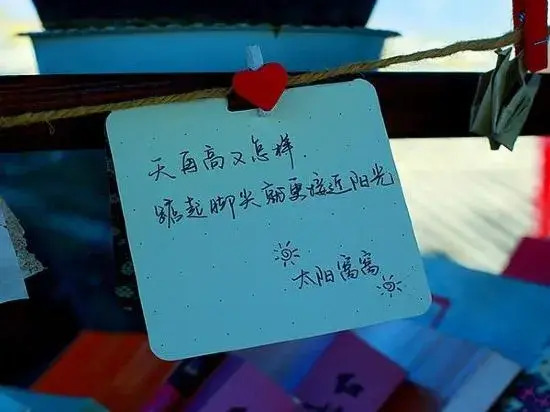 天再高又怎样
踮起脚尖就更接近阳光
太阳窝窝